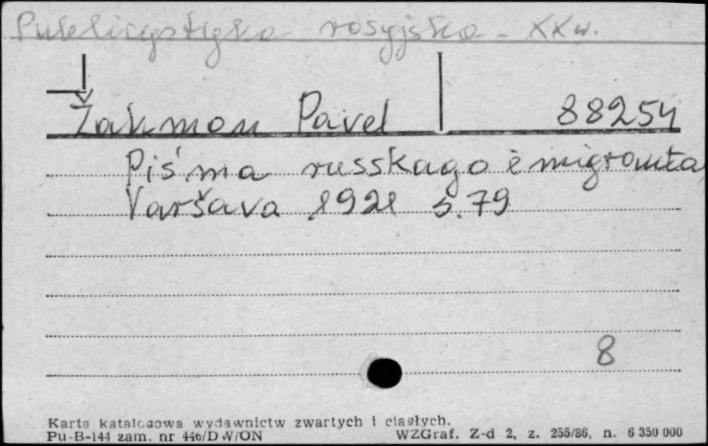 Publicystyka rosyjska - XX w.
Žakmon Pavel 88254
Piśma russkago èmigranta
Varšava 1921 s. 79
8
Karta katalogowa wydawnictw zwartych i ciągłych.
Pu-B-144 zam. nr 446/DW/ON WZGraf. Z-d 2, z. 255/86, n. 6 350 000